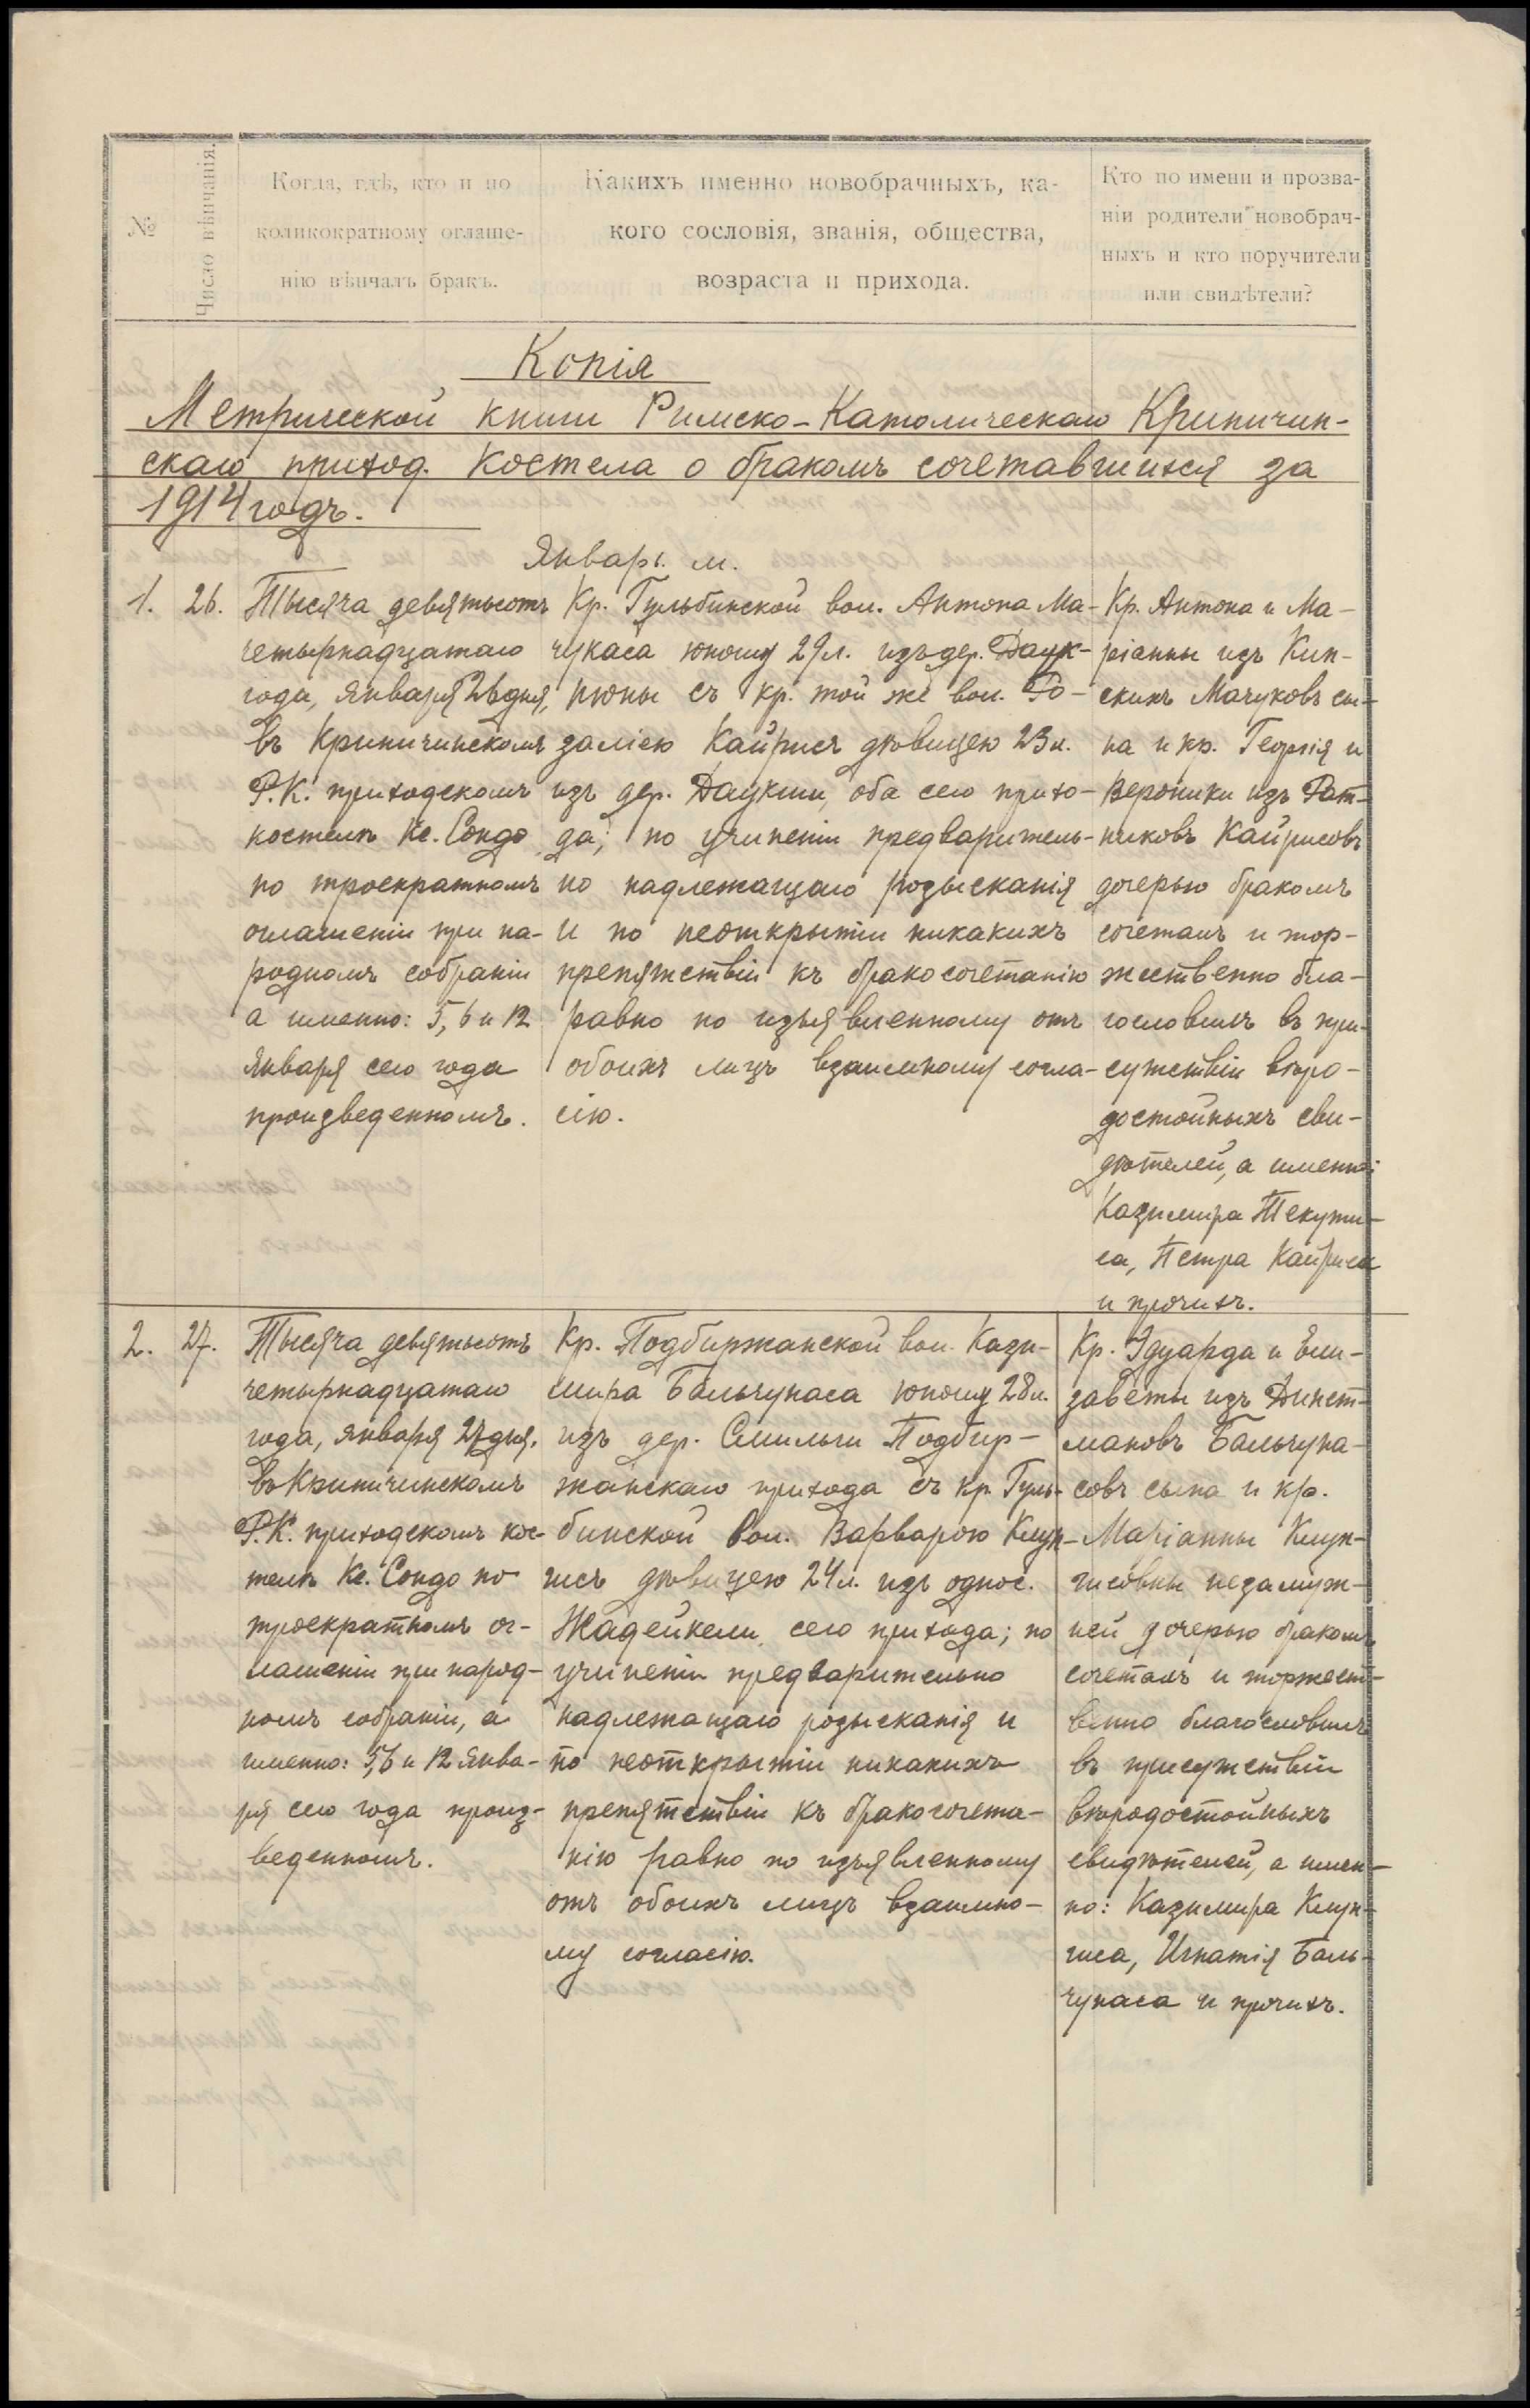 №
Число вѣнчанія.
Когда, гдѣ, кто и по
коликократному оглаше-
нію вѣнчалъ бракъ.
Какихъ именно новобрачныхъ, ка-
кого сословія, званія, общества,
возраста и прихода.
Кто по имени и прозва-
ніи родители новобрач-
ныхъ и кто поручители
или свидѣтели?
Копія
Метрической книги Римско-Католическаго Криничин-
скаго приход. костела о бракомъ сочетавшихся за
1914 годъ.
Январь. м.
1.
26.
Тысяча девятьсотъ
четырнадцатаго
года, Января 26 дня,
въ Криничинскомъ
Р.К. приходскомъ
костелѣ Кс. Сондо
по троекратномъ
оглашеніи при на-
родномъ собраніи
а именно: 5, 6 и 12
Января сего года
произведенномъ.
Кр. Гульбинской вол. Антона Ма-
чукаса юношу 29 л. изъ дер. Даук-
нюны съ кр. той же вол. Ро-
заліею Кайрисъ дѣвицею 23 л.
изъ дер. Даукши, оба сего прихо-
да; по учиненіи предваритель-
но надлежащаго розысканія
и по неоткрытіи никакихъ
препятствій къ бракосочетанію
равно по изъявленному отъ
обоихъ лицъ взаимному согла-
сію.
Кр. Антона и Ма-
ріанны изъ Кин-
скихъ Мачуковъ сы-
на и кр. Георгія и
Вероники изъ Рат-
никовъ Кайрисовъ
дочерью бракомъ
сочеталъ и тор-
жественно бла-
гословилъ въ при-
сутствіи вѣро-
достойныхъ сви-
дѣтелей, а именно:
Казимира Текути-
са, Петра Кайриса
и прочихъ.
2.
27.
Тысяча девятьсотъ
четырнадцатаго
года, Января 27 дня,
въ Криничинскомъ
Р.К. приходскомъ кос-
телѣ Кс. Сондо по
троекратномъ ог-
лашеніи при народ-
номъ собраніи, а
именно: 5, 6 и 12 Янва-
ря сего года произ-
веденномъ.
Кр. Подбиржанской вол. Кази-
мира Бальчунаса юношу 28 л.
изъ дер. Смильги Подбир-
жанскаго прихода съ кр. Гуль-
бинской вол. Варварою Клун-
гисъ дѣвицею 24 л. изъ однос.
Жадейкели сего прихода; по
учиненіи предварительно
надлежащаго розысканія и
по неоткрытіи никакихъ
препятствій къ бракосочета-
нію равно по изъявленному
отъ обоихъ лицъ взаимно-
му согласію.
Кр. Эдуарда и Ели-
заветы изъ Динст-
мановъ Бальчуна-
совъ сына и кр.
Маріанны Клун-
гисовны незамуж-
ней дочерью бракомъ
сочеталъ и торжест-
венно благословилъ
въ присутствіи
вѣродостойныхъ
свидѣтелей, а имен-
но: Казимира Клун-
гиса, Игнатія Баль-
чунаса и прочихъ.